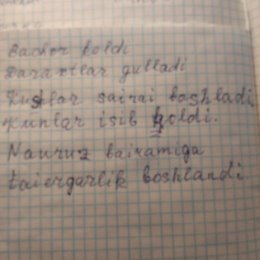 Bachor boldi
Daraxtlar gulladi
Kushlar sairai boshladi
Kunlar isib koldi.
Nauruz bairamiga
taiergarlik boshlandi